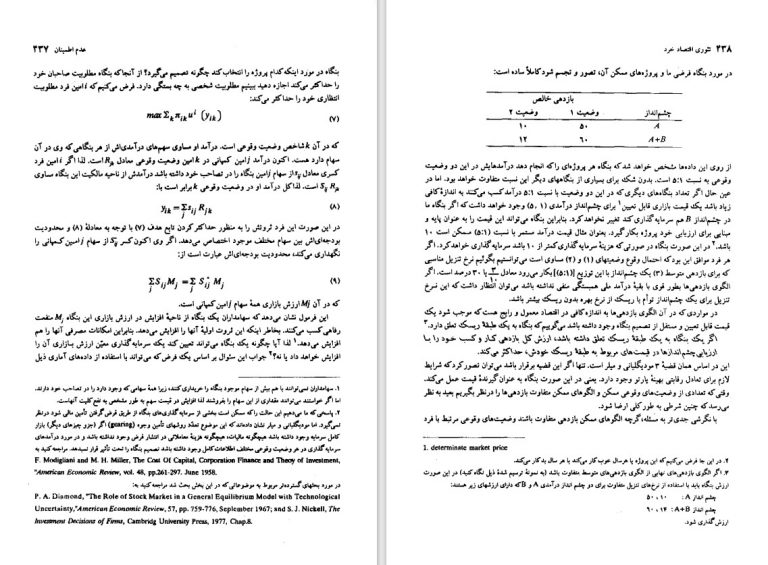 عدم اطمینان ۴۳۷
بنگاه در مورد اینکه کدام پروژه را انتخاب کند چگونه تصمیم می‌گیرد؟ از آنجا که بنگاه مطلوبیت صاحبان خود
را حداکثر می‌کند اجازه دهید ببینیم مطلوبیت شخصی به چه بستگی دارد. فرض می‌کنیم که i امین فرد مطلوبیت
انتظاری خود را حداکثر می‌کند:
max Σₖ πᵢₖ uⁱ (yᵢₖ) (۷)
که در آن k شاخص وضعیت وقوعی است. درآمد او مساوی سهم‌های درآمدی‌اش از هر بنگاهی که وی در آن
سهام دارد هست. اکنون درآمد j امین کمپانی در k امین وضعیت وقوعی معادل Rⱼₖ است. لذا اگر i امین فرد
کسری معادل Sᵢⱼ از سهام j امین بنگاه را در تصاحب خود داشته باشد درآمدش از ناحیه مالکیت این بنگاه مساوی
Sᵢⱼ Rⱼₖ است. لذا کل درآمد او در وضعیت وقوعی k برابر است با:
yᵢₖ = Σⱼ sᵢⱼ Rⱼₖ (۸)
در این صورت این فرد ثروتش را به منظور حداکثر کردن تابع هدف (۷) با توجه به معادلهٔ (۸) و محدودیت
بودجه‌ای‌اش بین سهام مختلف موجود اختصاص می‌دهد. اگر وی اکنون کسر S°ᵢⱼ از سهام j امین کمپانی را
نگهداری می‌کند، محدودیت بودجه‌ای‌اش عبارت است از:
Σⱼ Sᵢⱼ Mⱼ = Σⱼ S°ᵢⱼ Mⱼ (۹)
که در آن Mⱼ ارزش بازاری همهٔ سهام j امین کمپانی است.
این فرمول نشان می‌دهد که سهامداران یک بنگاه از ناحیهٔ افزایش در ارزش بازاری این بنگاه Mⱼ منفعت
رفاهی کسب می‌کنند. بخاطر اینکه این ثروت اولیهٔ آنها را افزایش می‌دهد. بنابراین امکانات مصرفی آنها را هم
افزایش می‌دهد.¹ لذا آیا چگونه یک بنگاه می‌تواند تعیین کند یک سرمایه‌گذاری معیّن ارزش بازاری آن را
افزایش خواهد داد یا نه؟² جواب این سوال بر اساس یک فرض که می‌تواند با استفاده از داده‌های آماری ذیل
۱. سهامداران نمی‌توانند با هم بیش از سهام موجود بنگاه را خریداری کنند، زیرا همهٔ سهامی که وجود دارد را در تصاحب خود دارند.
اما اگر خواستند می‌توانند مقداری از این سهام را بفروشند لذا افزایش در قیمت سهم به طور مشخص به نفع کلیت آنهاست.
۲. پاسخی که ما می‌دهیم این حالت را که ممکن است بخشی از سرمایه‌گذاری‌های بنگاه از طریق قرض گرفتن تأمین مالی شود درنظر
نمی‌گیرد. اما مودیگلیانی و میلر نشان داده‌اند که این موضوع تعدّد روشهای تأمین وجوه (gearing) اگر (جزو چیزهای دیگر) بازار
کامل سرمایه وجود داشته باشد هیچگونه مالیات، هیچگونه هزینهٔ معاملاتی در انتشار قرض وجود نداشته باشد و در مورد درآمدهای
سرمایه‌گذاری در هر وضعیت وقوعی مختلف اطلاعات کامل وجود داشته باشد تصمیم بنگاه را تحت تأثیر قرار نمیدهد. مراجعه کنید به
F. Modigliani and M. H. Miller, The Cost Of Capital, Corporation Finance and Theoy of Investment,
"American Economic Review, vol. 48, pp.261-297. June 1958.
در مورد بحثهای گسترده‌تر مربوط به موضوعاتی که در این بخش بحث شد مراجعه کنید به:
P. A. Diamond, "The Role of Stock Market in a General Equilibrium Model with Technological
Uncertainty,"American Economic Review, 57, pp. 759-776, Sepcember 1967; and S. J. Nickell, The
Investment Decisions of Firms, Cambridg University Press, 1977, Chap.8.
۴۳۸ تئوری اقتصاد خرد
در مورد بنگاه فرضی ما و پروژه‌های ممکن آن، تصور و تجسم شود کاملاً ساده است:
بازدهی خالص
چشم‌انداز وضعیت ۱ وضعیت ۲
A ۵۰ ۱۰
A+B ۶۰ ۱۲
از روی این داده‌ها مشخص خواهد شد که بنگاه هر پروژه‌ای را که انجام دهد درآمدهایش در این دو وضعیت
وقوعی به نسبت ۵:۱ است. بدون شک برای بسیاری از بنگاههای دیگر این نسبت متفاوت خواهد بود. اما در
عین حال اگر تعداد بنگاه‌های دیگری که در این دو وضعیت با نسبت ۵:۱ درآمد کسب می‌کنند به اندازهٔ کافی
زیاد باشد یک قیمت بازاری قابل تعیین¹ برای چشم‌انداز درآمدی (۱، ۵) وجود خواهد داشت که اگر بنگاه ما
در چشم‌انداز B هم سرمایه‌گذاری کند تغییر نخواهد کرد. بنابراین بنگاه می‌تواند این قیمت را به عنوان پایه و
مبنایی برای ارزیابی خود پروژه بکار گیرد. بعنوان مثال قیمت درآمد مستمر با نسبت (۵:۱) ممکن است ۱۰
باشد.² در این صورت بنگاه در صورتی که هزینهٔ سرمایه‌گذاری کمتر از ۱۰ باشد سرمایه‌گذاری خواهد کرد. اگر
هر فرد موافق این بود که احتمال وقوع وضعیتهای (۱) و (۲) مساوی است می‌توانستیم بگوئیم نرخ تنزیل مناسبی
که برای بازدهی متوسط (۳) یک چشم‌انداز با این توزیع [(۵:۱)] بکار می‌رود معادل ۳/۱۰ یا ۳۰ درصد است. اگر
الگوی بازدهی‌ها بطور قوی با بقیهٔ درآمد ملی همبستگی منفی نداشته باشد می‌توان انتظار داشت که این نرخ
تنزیل برای یک چشم‌انداز توأم با ریسک از نرخ بهره بدون ریسک بیشتر باشد.
در مواردی که در آن الگوی بازدهی‌ها به اندازه کافی در اقتصاد معمول و رایج هست که موجب شود یک
قیمت قابل تعیین و مستقل از تصمیم بنگاه وجود داشته باشد می‌گوییم که بنگاه به یک طبقهٔ ریسک تعلق دارد.³
اگر یک بنگاه به یک طبقهٔ ریسک تعلق داشته باشد، ارزش کل بازدهی کار و کسب خود را بـا
ارزیابی چشم‌اندازها در قیمت‌های مربوط به طبقهٔ ریسک خودش، حداکثر می‌کند.
این در اساس همان قضیهٔ ۳ مودیگلیانی و میلر است. تنها اگر این قضیه برقرار باشد می‌توان تصور کرد که شرایط
لازم برای تعادل رقابتی بهینهٔ پارتو وجود دارد. یعنی در این صورت بنگاه به عنوان گیرندهٔ قیمت عمل می‌کند.
وقتی که تعدادی از وضعیت‌های وقوعی ممکن و الگوهای ممکن بازدهی‌ها را درنظر بگیریم بعید به نظر
می‌رسد که چنین شرطی به طور کلی ارضا شود.
با نگرشی جدی‌تر به مسئله، اگرچه الگوهای ممکن بازدهی متفاوت باشند وضعیت‌های وقوعی مرتبط با فرد
1. determinate market price
۲. در این جا فرض می‌کنیم که این پروژه یا هر سال خوب کار می‌کند و یا هر سال بد کار می‌کند.
۳. اگر الگوی بازدهی‌های نهایی از الگوی بازدهی‌های متوسط متفاوت باشد (به نمونهٔ ترسیم شدهٔ ذیل نگاه کنید) در این صورت
ارزش بنگاه باید با استفاده از نرخ‌های تنزیل متفاوت برای دو چشم انداز درآمدی A و B که دارای ارزشهای زیر هستند:
چشم انداز A : ۱۰ ، ۵۰
چشم انداز A+B : ۱۴ ، ۶۰
ارزش گذاری شود.